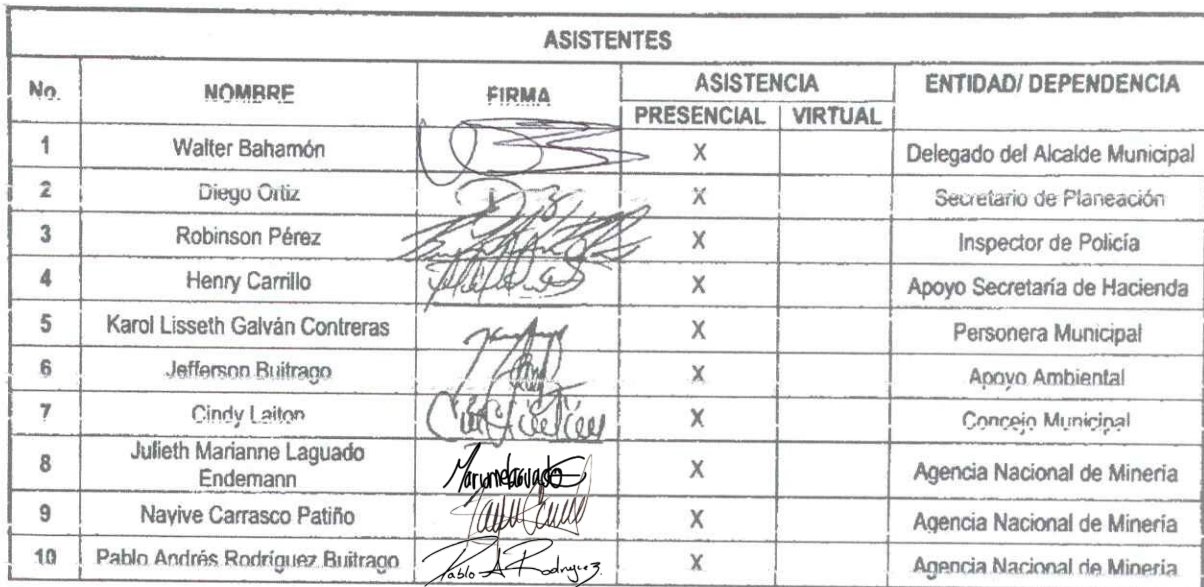 ASISTENTES
No. NOMBRE FIRMA ASISTENCIA ENTIDAD/ DEPENDENCIA
PRESENCIAL VIRTUAL
1 Walter Bahamón X Delegado del Alcalde Municipal
2 Diego Ortiz X Secretario de Planeación
3 Robinson Pérez X Inspector de Policía
4 Henry Carrillo X Apoyo Secretaría de Hacienda
5 Karol Lisseth Galván Contreras X Personera Municipal
6 Jefferson Buitrago X Apoyo Ambiental
7 Cindy Laiton X Concejo Municipal
8 Julieth Marianne Laguado
Endemann X Agencia Nacional de Minería
9 Nayive Carrasco Patiño X Agencia Nacional de Minería
10 Pablo Andrés Rodríguez Buitrago Pablo A Rodriguez X Agencia Nacional de Minería